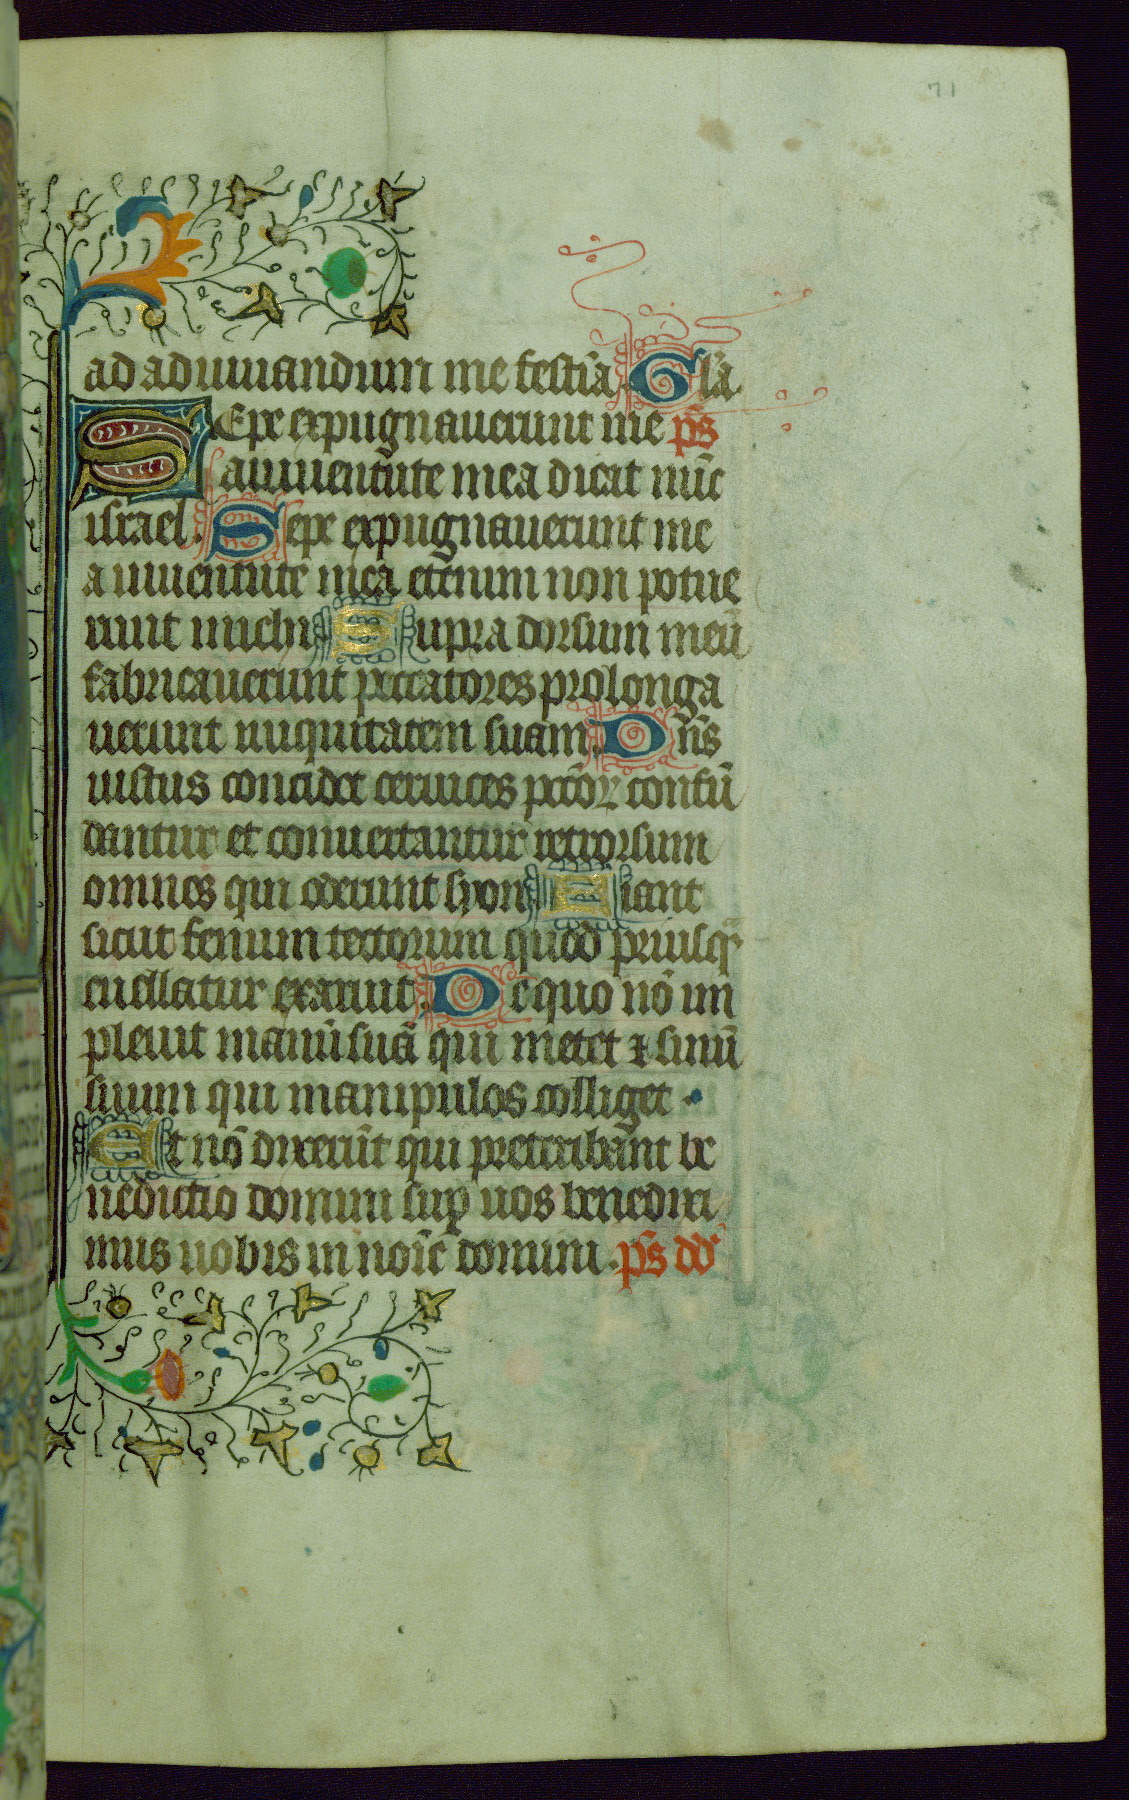 71
ad adiuuandum me festīa Glā
Sepe expugnauerunt me ps̄
a iuuentute mea dicat nūc
israel. Sepe expugnauerunt me
a iuuentute mea etenim non potue
runt michi Supra dorsum meū
fabricauerunt peccatores prolonga
uerunt iniquitatem suam. Dn̄s
iustus concidet ceruices pctōꝝ confū
dantur et conuertantur retrorsum
omnes qui oderunt syon Fiant
sicut fenum tectorum quod priusq̄
euellatur exaruit. De quo nō im
pleuit manū suā qui metet ⁊ sinū
suum qui manipulos colliget .
Et nō dixerūt qui preteribant be
nedictio domini suꝑ uos benedixi
mus uobis in noīe domini . ps̄ dd̄